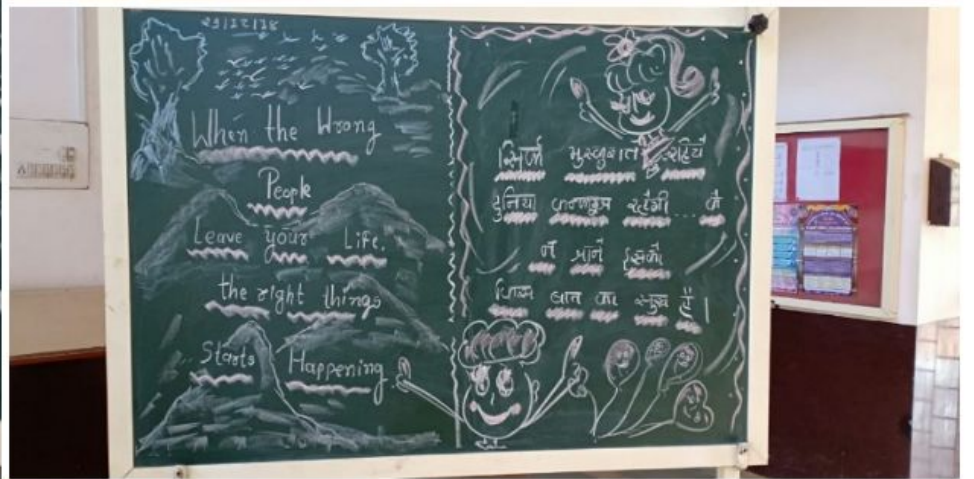 When the Wrong
People
Leave your Life.
the right things
Starts Happening
सिर्फ मुस्कुराते रहिये
दुनिया कन्फ्यूज रहेगी ... के
न जाने इसको
किस बात का सुख है।